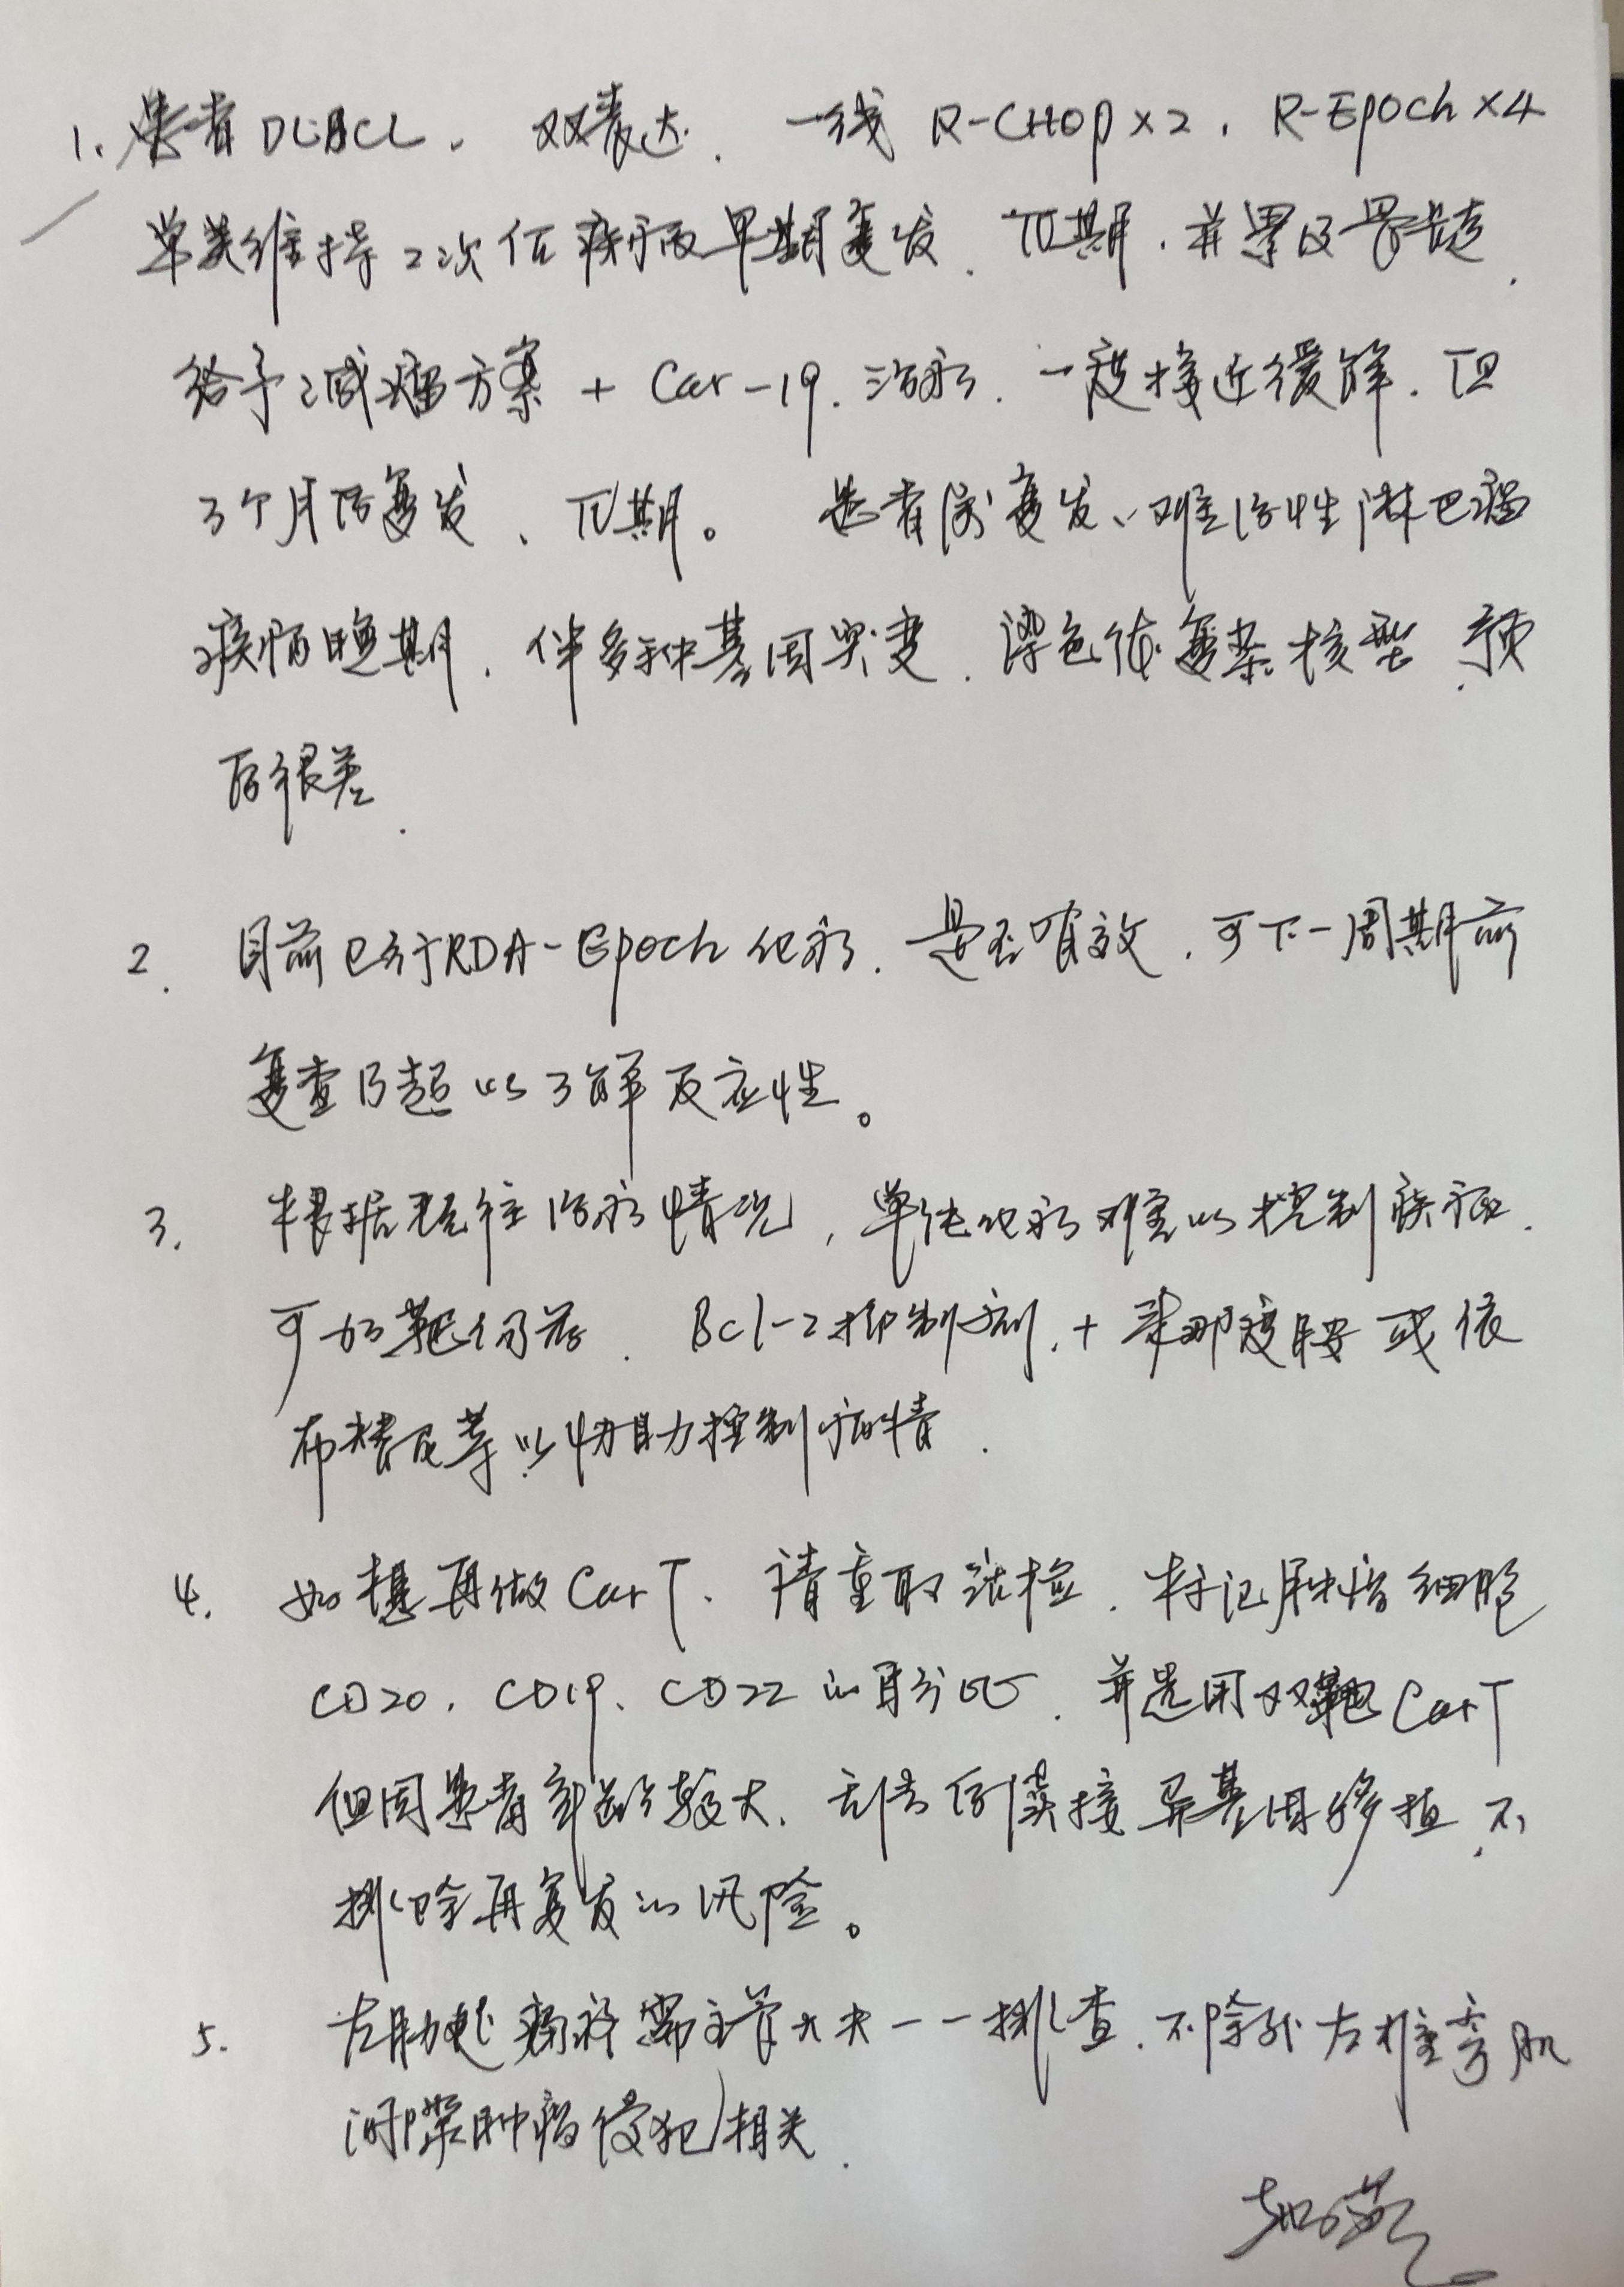 1. 患者DLBCL. 双表达. 一线 R-CHOP×2, R-EPOCH×4
单美维持2次 但疾病早期复发. IV期. 并累及骨髓.
给予减瘤方案 + Car-19. 治疗. 一度接近缓解. 但
3个月后复发、IV期。 患者属复发、难治性淋巴瘤
疾病晚期. 伴多种基因突变. 染色体复杂核型. 预
后很差.
2. 目前已行RDA-Epoch化疗. 是否有效. 可下一周期前
复查B超以了解反应性。
3. 根据既往治疗情况, 单纯化疗难以控制疾病.
可加靶向药. Bcl-2抑制剂. + 来那度胺 或依
布替尼等以协助控制病情.
4. 如想再做CarT. 请重取活检. 标记肿瘤细胞
CD20. CD19、CD22的百分比. 并选用双靶CarT
但因患者年龄较大. 无法后续接异基因移植. 不
排除再复发的风险。
5. 左肋 疼痛需主管大夫一一排查. 不除外左椎旁肌
间隙肿瘤侵犯相关.